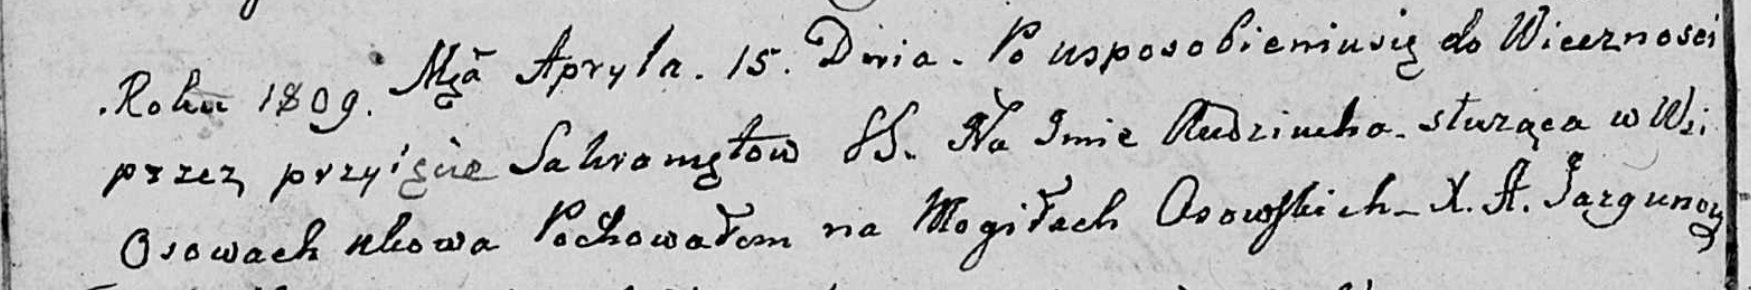 Roku 1809. Mca Apryla. 15. Dnia. Po usposobieniusię do Wiecznosci
przez przyięcie Sakramętow SS. Na Imie służąca w Wsi
Osowach Pochowałem na Mogiłach Osowskich_ X. A.